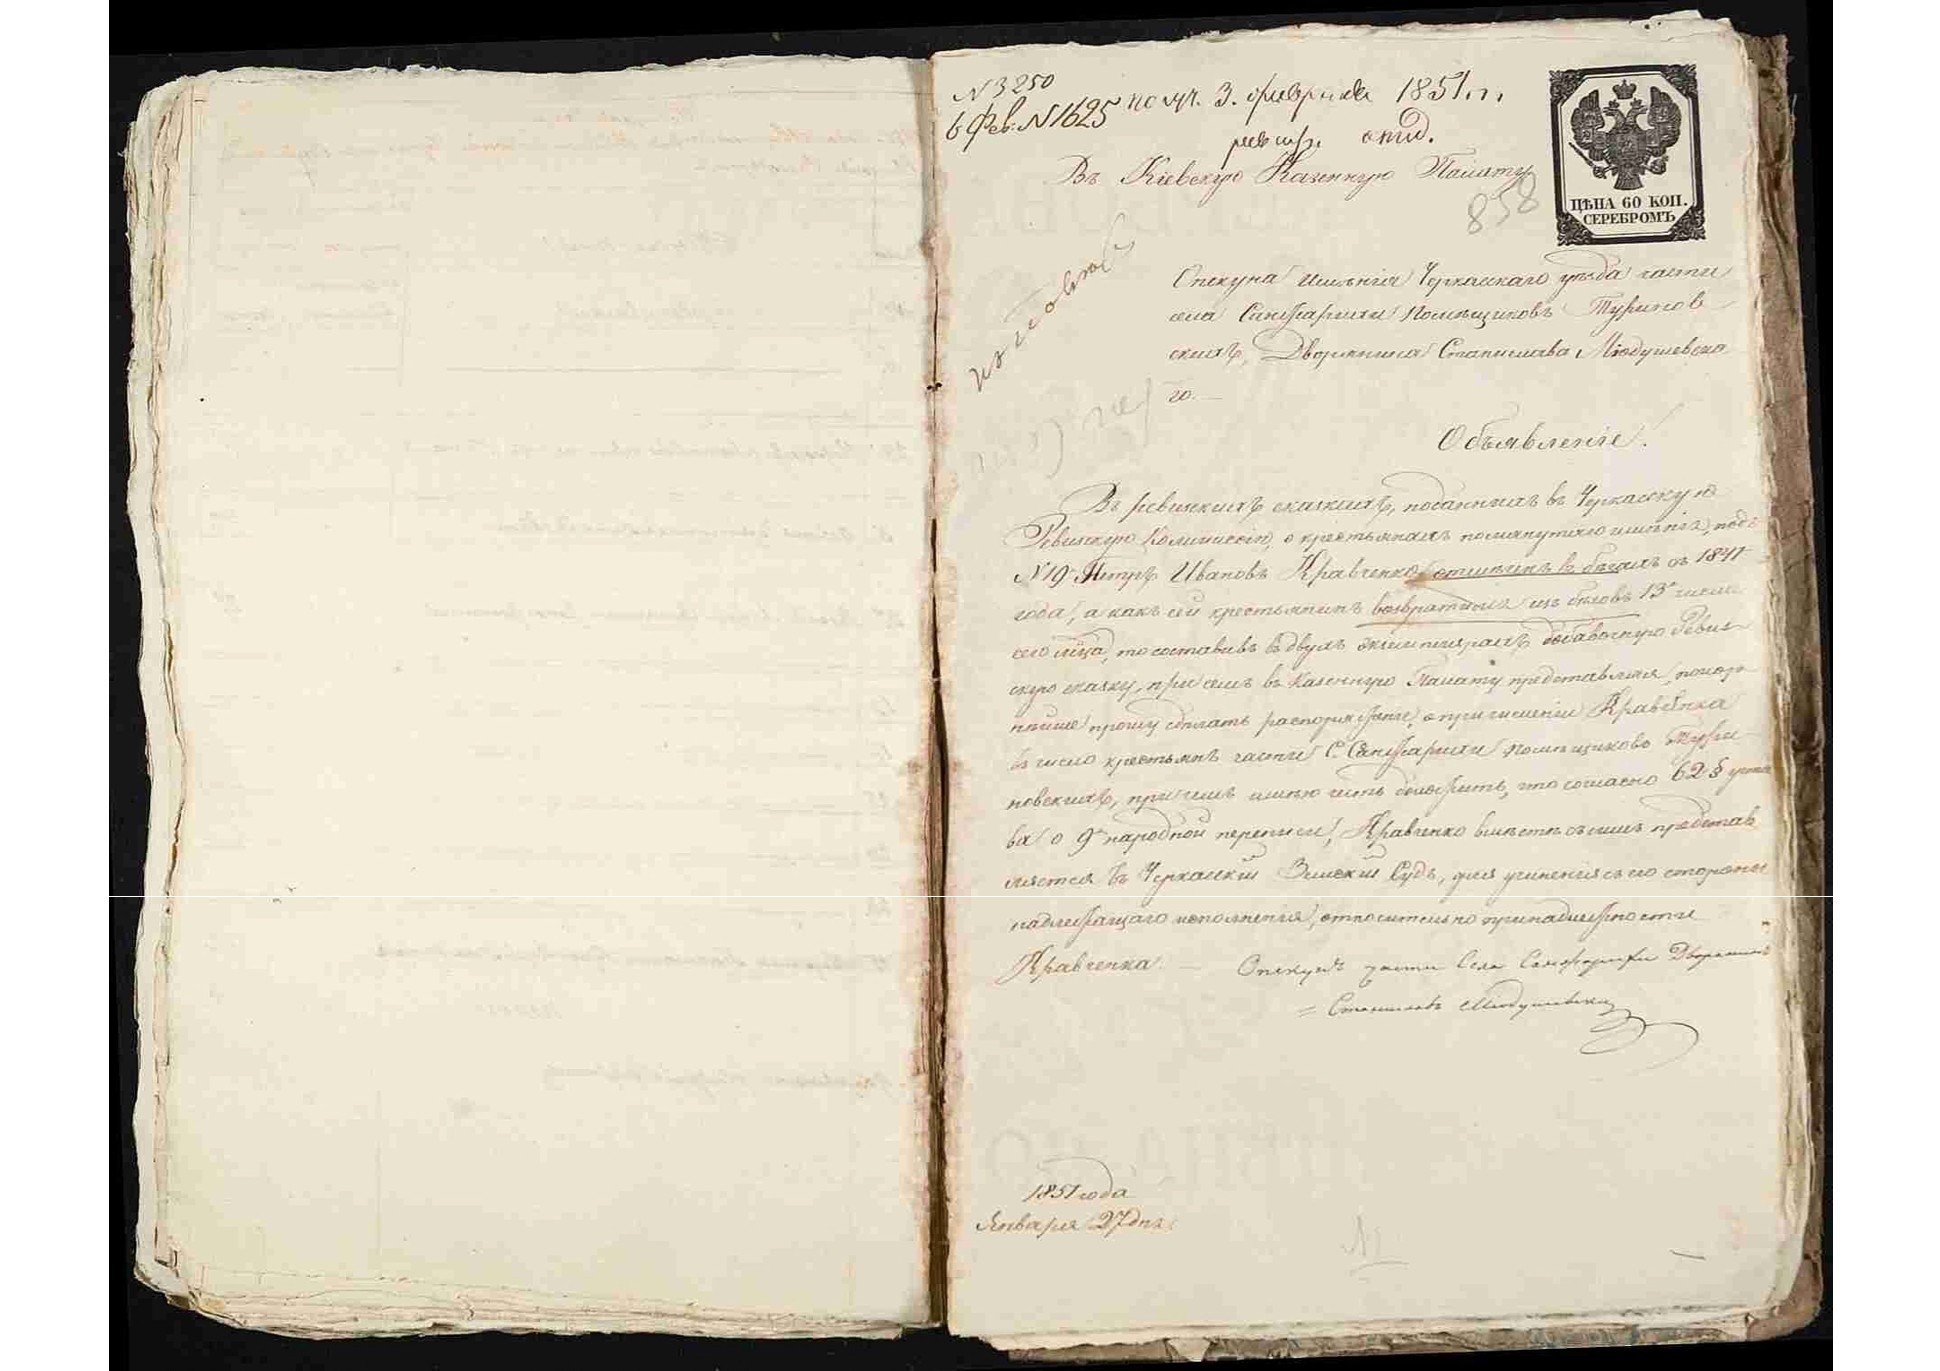 N 3250
6 Фев. N 1625 получ. 3. февраля 1851. г.
ревизс. отд.
Въ Кіевскую Казенную Палату
858
ЦѢНА 60 КОП.
СЕРЕБРОМЪ
Опекуна имѣнія Черкасскаго уѣзда части
села Санжарихи Помѣщиковъ Туринов-
скихъ, Дворянина Станислава Мiодушевска-
го. —
Объявленіе.
Въ ревизскихъ сказкахъ, поданныхъ въ Черкасскую
Ревизскую Коммиссію, о крестьянахъ помянутаго имѣнія, подъ
N 19 Петръ Ивановъ Кравченко отмѣченъ въ бѣгахъ съ 1847
года, а какъ сей крестьянинъ возвратился изъ бѣговъ 13го числа
сего м̃ца, то составивъ въ двухъ экземплярахъ добавочную Ревиз-
скую сказку, при семъ въ Казенную Палату представляя, покор-
нѣйше прошу сдѣлать распоряженіе о причисленіи Кравченка
въ число крестьянъ части С. Санжарихи Помѣщиковъ Тури-
новскихъ, при чемъ имѣю честь доложить, что согласно 62 § уста
ва о 9й народной переписи, Кравченко вмѣстѣ съ симъ представ
ляется въ Черкасскій Земскій Судъ, для учиненія съ его стороны
надлежащаго исполненія, относительно принадлежности
Кравченка. — Опекунъ части Села Санжарихи Дворянинъ
= Станиславъ Мiодушевскій
1851 года
Января 27 дня